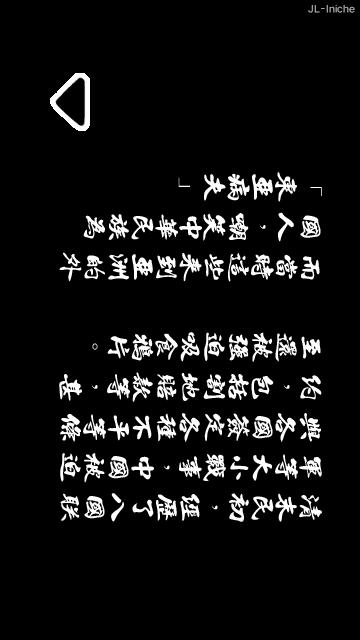 清末民初，經歷了八國联
軍等大小戰事，中國被迫
與各國簽定各種不平等條
約，包括割地賠款等，甚
至還被強迫吸食鴉片。
而當時這些來到亞洲的外
國人，嘲笑中華民族為
「東亞病夫」
JL-Iniche